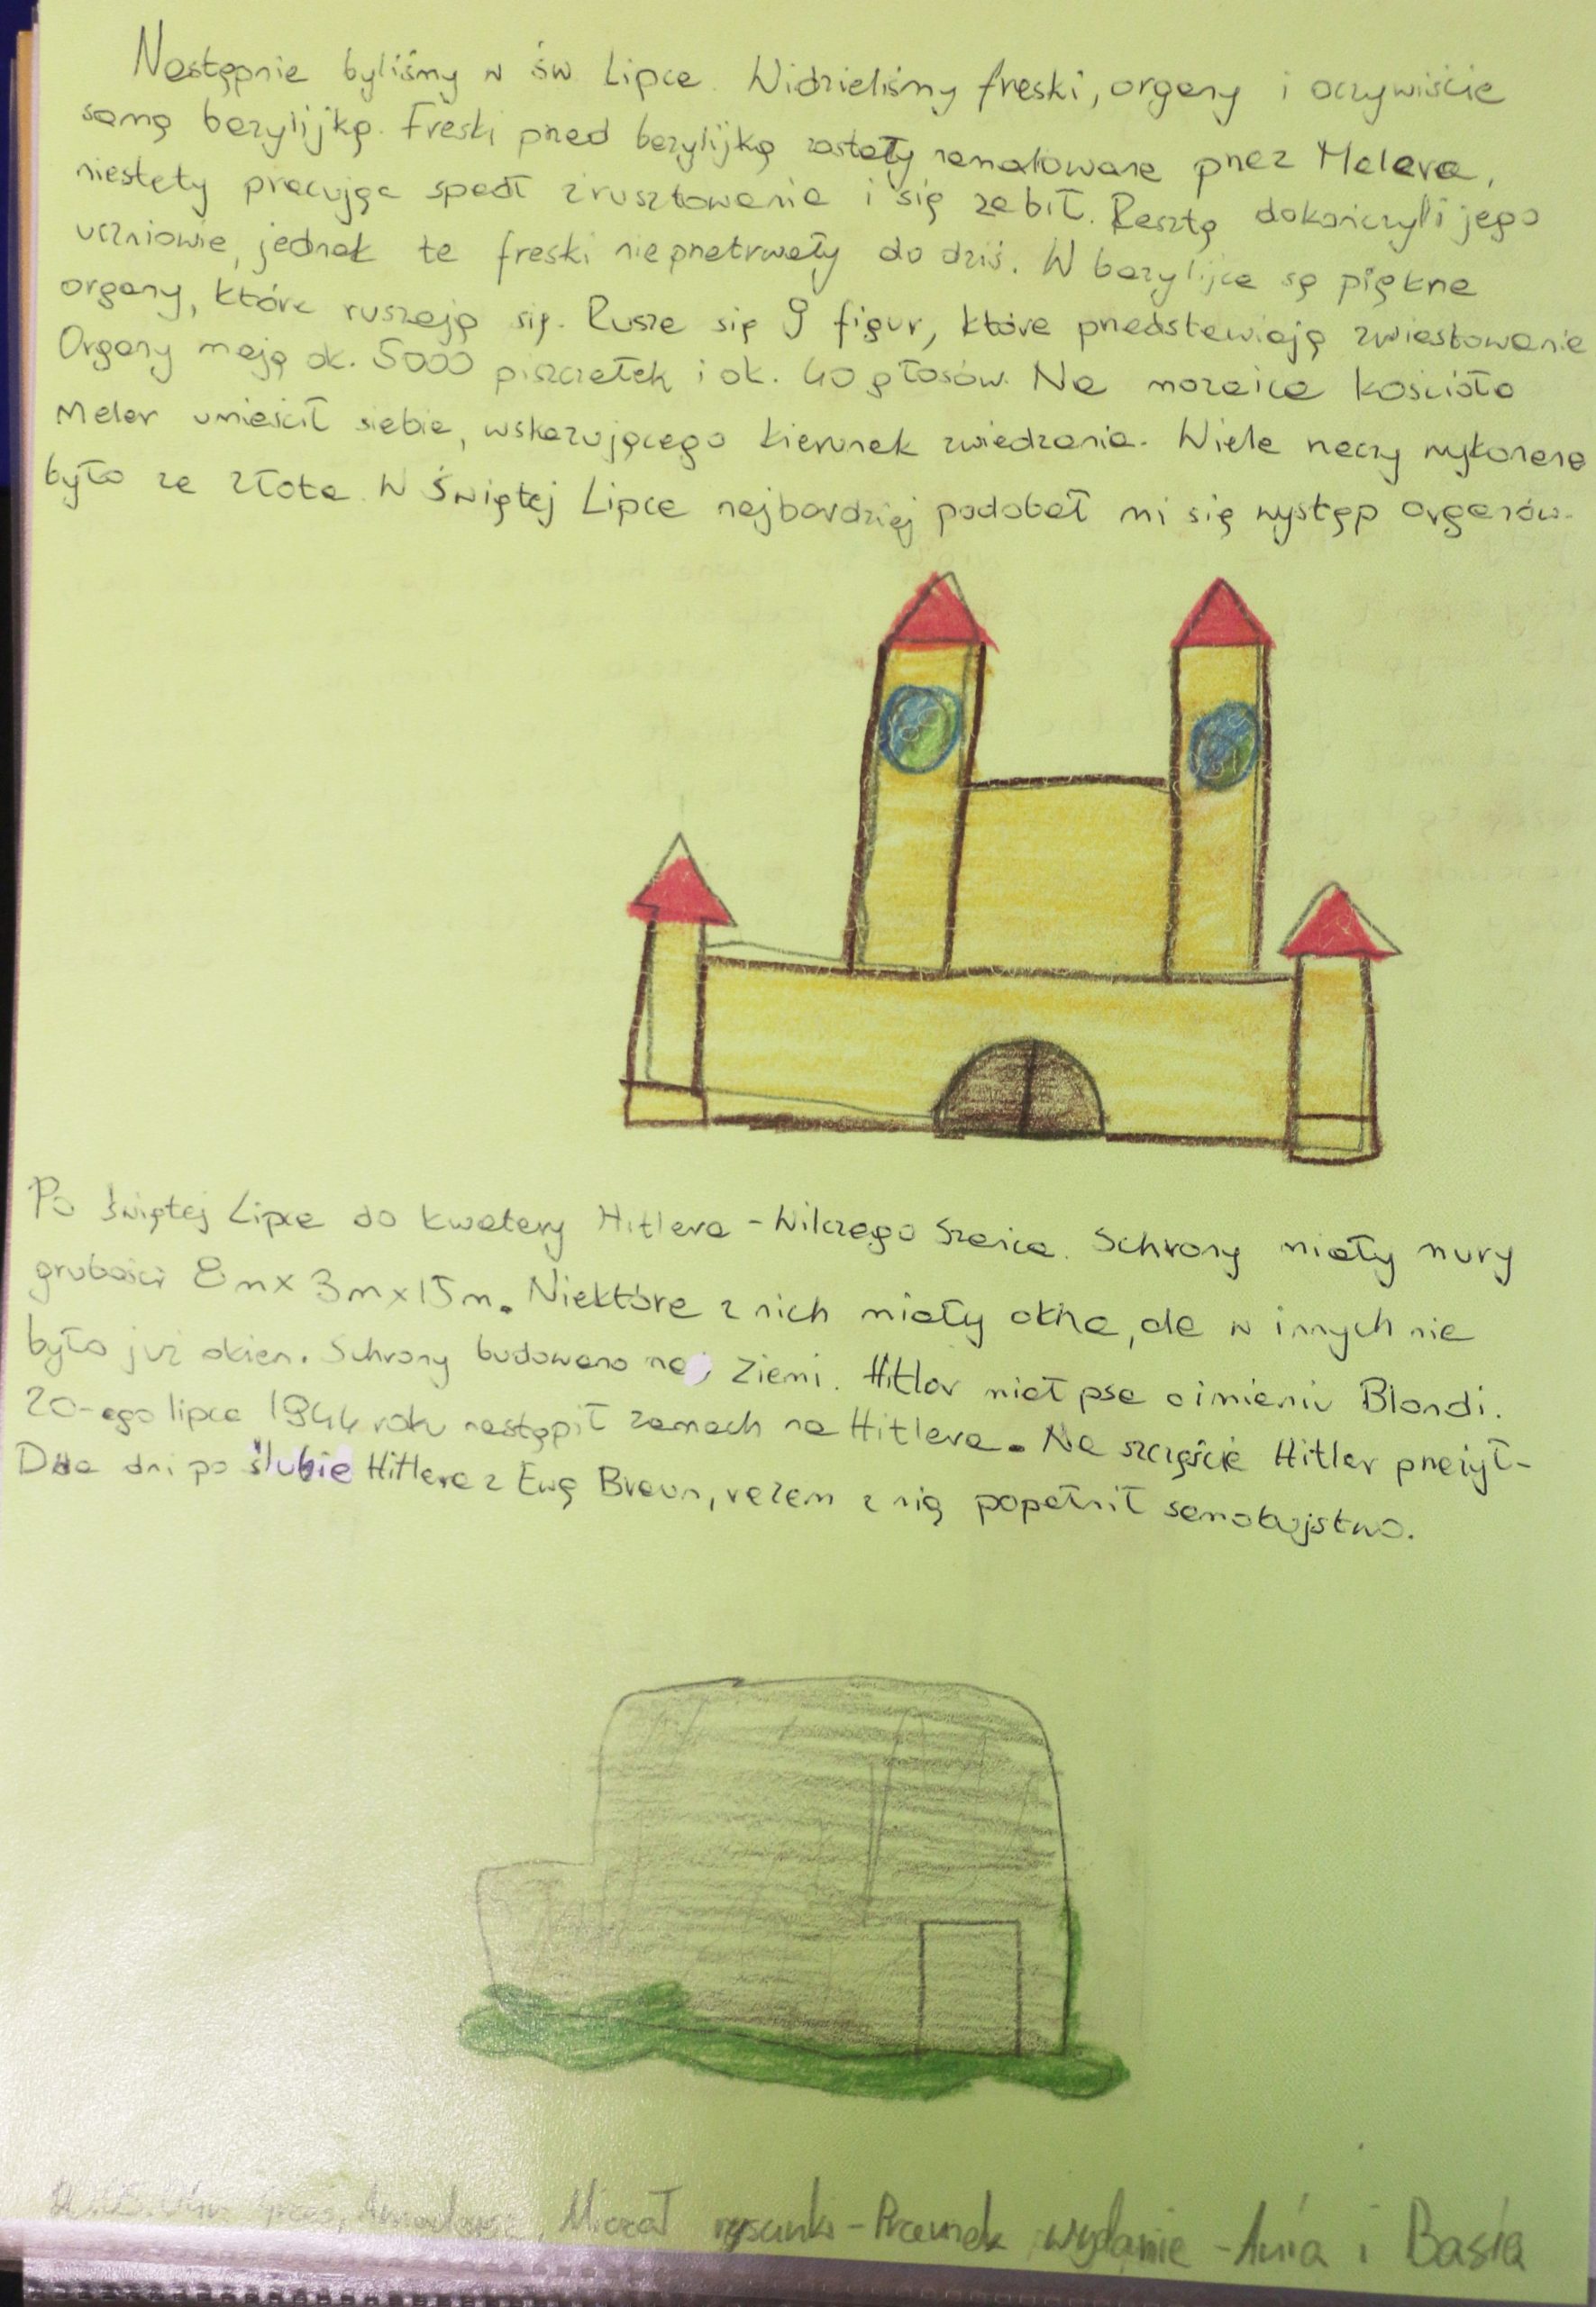 Następnie byliśmy w św Lipce. Widzieliśmy freski, organy i oczywiście
samą bazylijkę. Freski przed bazylijką zostały namalowane przez Malera,
niestety pracując spadł z rusztowania i się zabił. Resztę dokończyli jego
uczniowie, jednak te freski nie przetrwały do dziś. W bazylijce są piękne
organy, które ruszają się. Rusza się 9 figur, które przedstawiają zwiastowanie
Organy mają ok. 5000 piszczałek i ok. 40 głosów. Na mozaice kościoła
Maler umieścił siebie, wskazującego kierunek zwiedzania. Wiele rzeczy wykonane
było ze złota. W Świętej Lipce najbardziej podobał mi się występ organów.
Po Świętej Lipce do kwatery Hitlera - Wilczego Szańca. Schrony miały mury
grubości 8m x 3m x 15m. Niektóre z nich miały okna, ale w innych nie
było już okien. Schrony budowano na ziemi. Hitler miał psa o imieniu Blondi.
20-ego lipca 1944 roku nastąpił zamach na Hitlera. Na szczęście Hitler przeżył.
Dwa dni po ślubie Hitlera z Ewą Braun, razem z nią popełnił samobójstwo.
Michał rysunki - Przemek wydanie - Ania i Basia